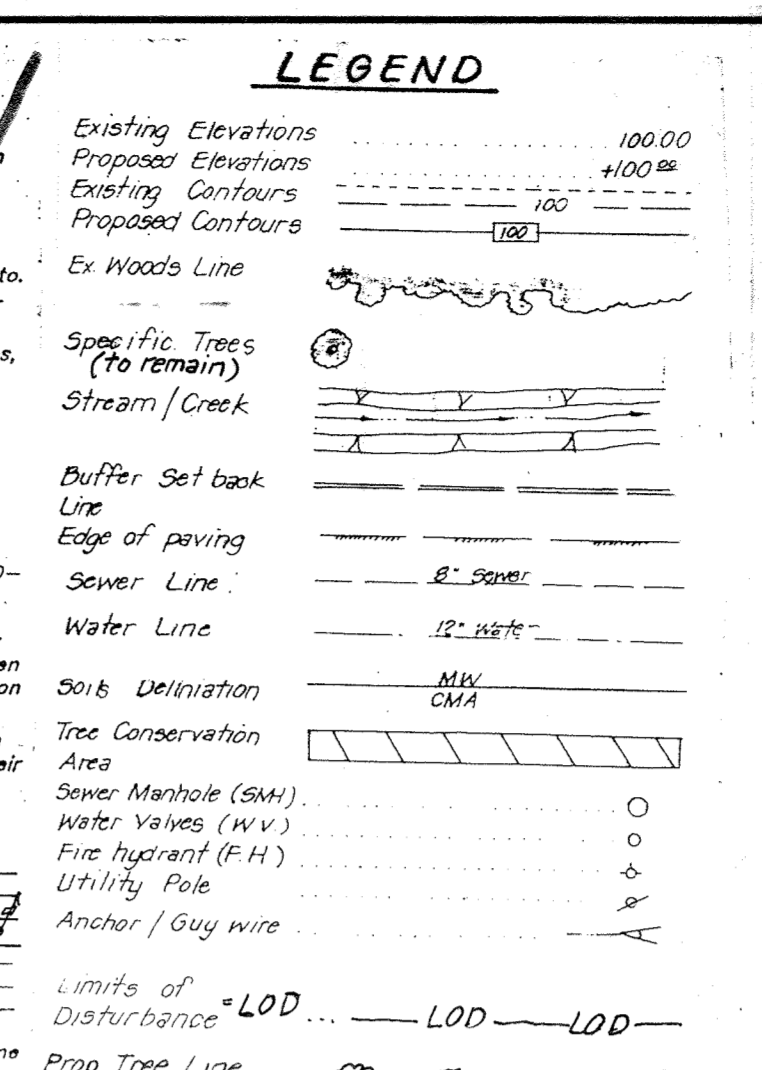 LEGEND
Existing Elevations 100.00
Proposed Elevations +100.00
Existing Contours 100
Proposed Contours 100
Ex. Woods Line
Specific Trees
(to remain)
Stream / Creek
Buffer Setback
Line
Edge of paving
Sewer Line 8" Sewer
Water Line 12" Wate
Soils Deliniation MW
CMA
Tree Conservation
Area
Sewer Manhole (SMH)
Water Valves (W.V.)
Fire hydrant (F.H.)
Utility Pole
Anchor / Guy wire
Limits of
Disturbance = LOD ... LOD LOD
Prop Tree Line
to.
s,
en
on
eir